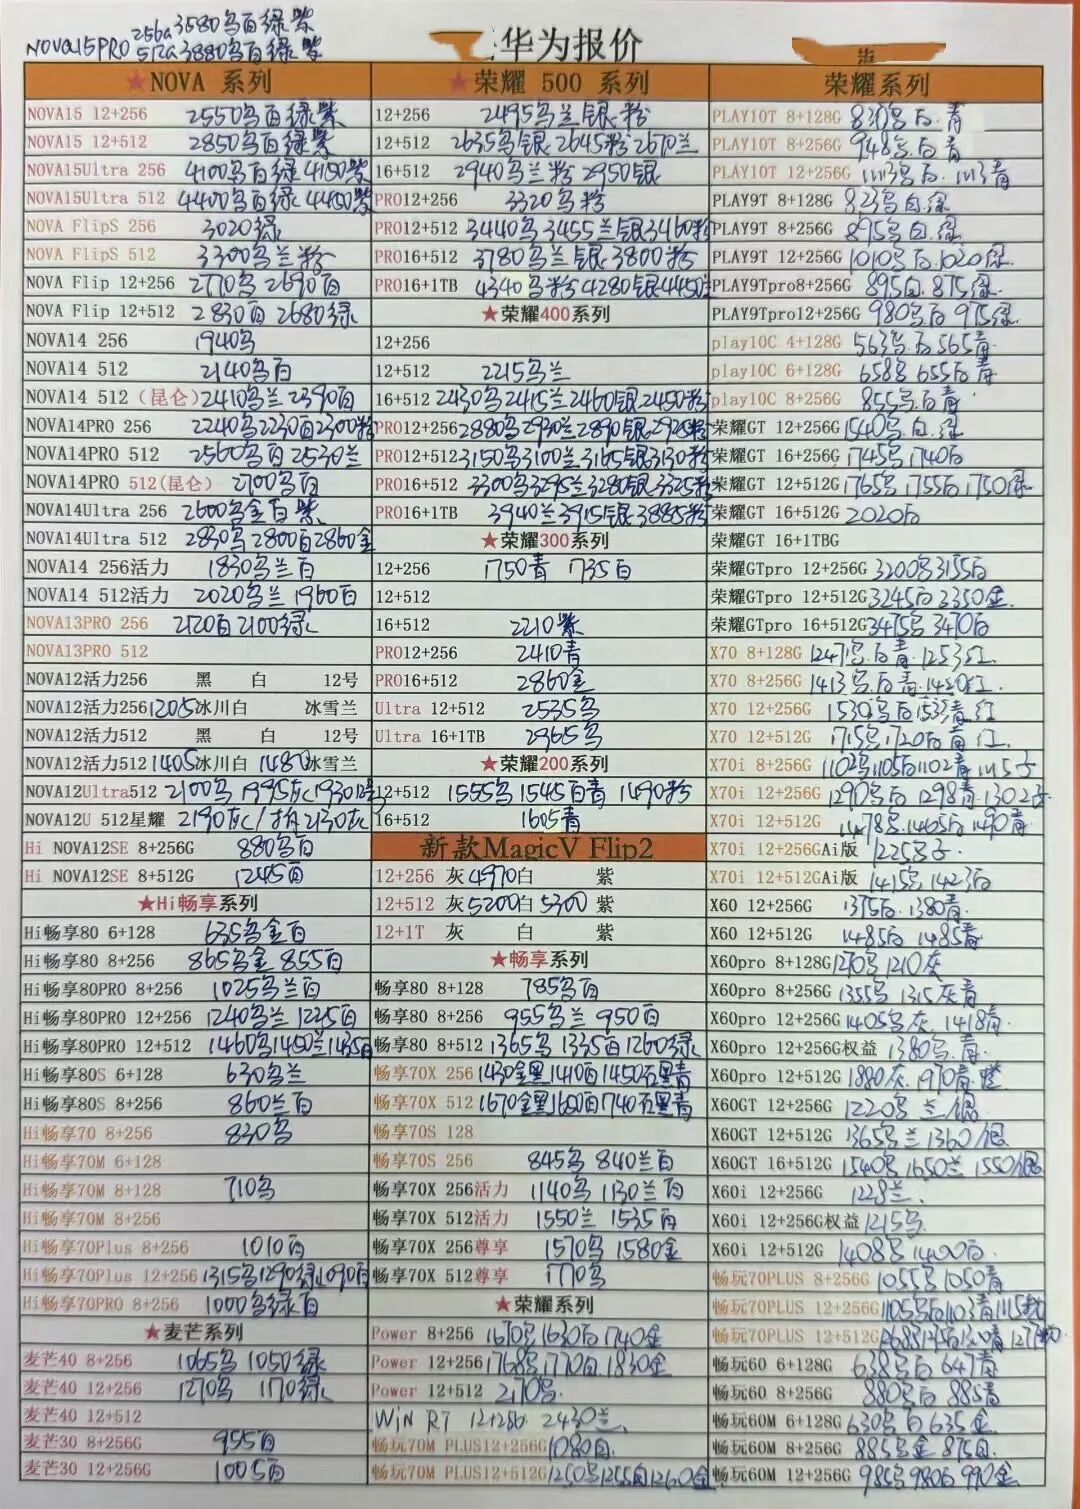 NOVA15PRO 256G 3580乌白绿紫
512G 3880乌白绿紫
华为报价
★NOVA 系列
NOVA15 12+256 2550乌白绿紫
NOVA15 12+512 2850乌白绿紫
NOVA15Ultra 256 4100乌白绿 4150紫
NOVA15Ultra 512 4400乌白绿 4450紫
NOVA FlipS 256 3020绿
NOVA FlipS 512 3300乌兰粉
NOVA Flip 12+256 2770乌 2690白
NOVA Flip 12+512 2830白 2680绿
NOVA14 256 1940乌
NOVA14 512 2140乌白
NOVA14 512（昆仑）2410乌兰 2390白
NOVA14PRO 256 2240乌2230白2300粉
NOVA14PRO 512 2560乌白 2530兰
NOVA14PRO 512(昆仑) 2700乌白
NOVA14Ultra 256 2600乌金白紫
NOVA14Ultra 512 2830乌 2800白2860金
NOVA14 256活力 1830乌兰白
NOVA14 512活力 2020乌兰 1960白
NOVA13PRO 256 2120白 2100绿
NOVA13PRO 512
NOVA12活力256 黑 白 12号
NOVA12活力256 1205冰川白 冰雪兰
NOVA12活力512 黑 白 12号
NOVA12活力512 1405冰川白 1480冰雪兰
NOVA12Ultra512 2100乌 1995灰 1930
NOVA12U 512星耀 2190灰/ 2130灰
Hi NOVA12SE 8+256G 880乌白
Hi NOVA12SE 8+512G 1245白
★Hi畅享系列
Hi畅享80 6+128 635乌金白
Hi畅享80 8+256 865乌金 855白
Hi畅享80PRO 8+256 1025乌兰白
Hi畅享80PRO 12+256 1240乌兰 1225白
Hi畅享80PRO 12+512 1460乌1450兰1435白
Hi畅享80S 6+128 630乌兰
Hi畅享80S 8+256 860兰白
Hi畅享70 8+256 830乌
Hi畅享70M 6+128
Hi畅享70M 8+128 710乌
Hi畅享70M 8+256
Hi畅享70Plus 8+256 1010白
Hi畅享70Plus 12+256 1315乌1290绿1090白
Hi畅享70PRO 8+256 1000乌绿白
★麦芒系列
麦芒40 8+256 1065乌 1050绿
麦芒40 12+256 1270乌 1170绿
麦芒40 12+512
麦芒30 8+256G 955白
麦芒30 12+256G 1005白
★荣耀 500 系列
12+256 2495乌兰银粉
12+512 2635乌银 2645粉 2670兰
16+512 2940乌兰粉 2950银
PRO12+256 3320乌粉
PRO12+512 3440乌 3455兰银3460粉
PRO16+512 3780乌兰银 3800粉
PRO16+1TB 4340乌粉 4280银4450
★荣耀400系列
12+256
12+512 2215乌兰
16+512 2430乌2415兰2460银2450粉
PRO12+256 2880乌2930兰2890银2925粉
PRO12+512 3150乌3100兰3165银3130粉
PRO16+512 3300乌3295兰3280银3325粉
PRO16+1TB 3940兰3915银3885粉
★荣耀300系列
12+256 1750青 1735白
12+512
16+512 2210紫
PRO12+256 2410青
PRO16+512 2860金
Ultra 12+512 2535乌
Ultra 16+1TB 2965乌
★荣耀200系列
12+512 1555乌 1545白青 1490粉
16+512 1605青
新款MagicV Flip2
12+256 灰 4970白 紫
12+512 灰 5200白 5300 紫
12+1T 灰 白 紫
★畅享系列
畅享80 8+128 785乌白
畅享80 8+256 955乌兰 950白
畅享80 8+512 1365乌 1335白1260绿
畅享70X 256 1430金黑1410白1450石墨青
畅享70X 512 1670金黑1680白1740石墨青
畅享70S 128
畅享70S 256 845乌 840兰白
畅享70X 256活力 1140乌 1130兰白
畅享70X 512活力 1550兰 1535白
畅享70X 256尊享 1570乌 1580金
畅享70X 512尊享 1770乌
★荣耀系列
Power 8+256 1670乌1630白 1740金
Power 12+256 1768乌1770白.1830金
Power 12+512 2170乌.
WIN RT 12+256 2430兰.
畅玩70M PLUS12+256G 1080白.
畅玩70M PLUS12+512G 1250乌1255白1260金
荣耀系列
PLAY10T 8+128G 830乌白.青
PLAY10T 8+256G 948乌白青
PLAY10T 12+256G 1113乌白. 1113青
PLAY9T 8+128G 823乌白.绿
PLAY9T 8+256G 895乌白.绿
PLAY9T 12+256G 1010乌白.1020绿.
PLAY9Tpro8+256G 895白.875绿.
PLAY9Tpro12+256G 980乌白 975绿.
play10C 4+128G 563乌白565青
play10C 6+128G 658乌 655白青
play10C 8+256G 855乌.白青
荣耀GT 12+256G 1540乌.白.绿
荣耀GT 16+256G 1745乌 1740白
荣耀GT 12+512G 1765乌 1755白 1750绿
荣耀GT 16+512G 2020白
荣耀GT 16+1TBG
荣耀GTpro 12+256G 3200乌3155白
荣耀GTpro 12+512G 3245白 3350金.
荣耀GTpro 16+512G 3475乌 3470白
X70 8+128G 1247乌.白青.1253红.
X70 8+256G 1413乌.白青.1420红.
X70 12+256G 1530乌白1533青.红
X70 12+512G 1715乌1720白青 红.
X70i 8+256G 1102乌1105白1102青 1115
X70i 12+256G 1290乌白 1298青.1302
X70i 12+512G 1478乌.1465白 1490青.
X70i 12+256GAi版 1225乌
X70i 12+512GAi版 1415乌 1423白
X60 12+256G 1375白.1380青.
X60 12+512G 1485白 1485青
X60pro 8+128G 1210乌 1210灰
X60pro 8+256G 1355乌 1315灰青
X60pro 12+256G 1405乌灰 1418青.
X60pro 12+256G权益 1380乌.青.
X60pro 12+512G 1880灰 1970青
X60GT 12+256G 1220乌 兰/银
X60GT 12+512G 1365乌兰 1360/银
X60GT 16+512G 1540乌 1650兰 1550/银
X60i 12+256G 1228兰.
X60i 12+256G权益 1215乌
X60i 12+512G 1408乌 1400白.
畅玩70PLUS 8+256G 1055乌 1050青
畅玩70PLUS 12+256G 1105乌白1103青1115
畅玩70PLUS 12+512G
畅玩60 6+128G 638乌白 647青
畅玩60 8+256G 880乌白 885青
畅玩60M 6+128G 630乌 白 635金
畅玩60M 8+256G 885乌金 875白.
畅玩60M 12+256G 985乌980白 990金.